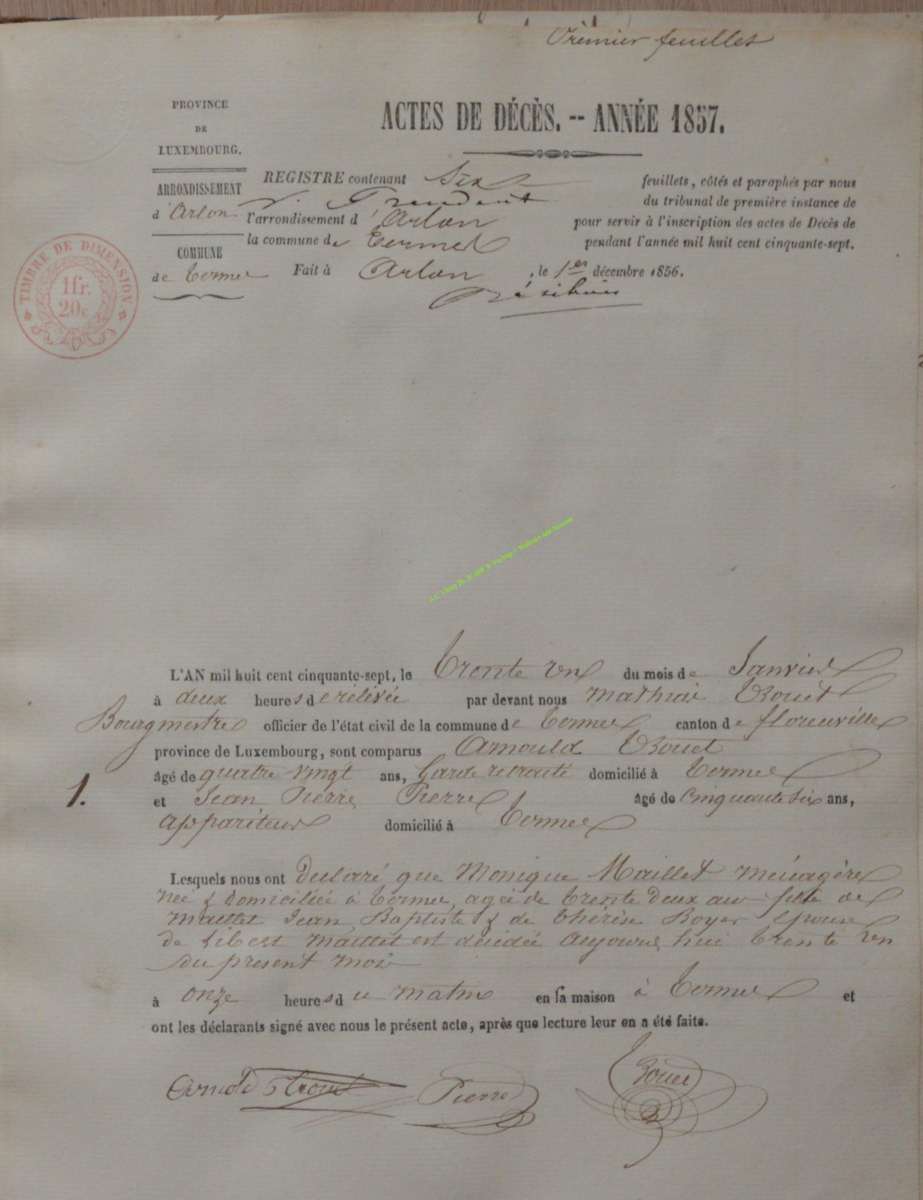 Premier feuillet
PROVINCE
DE
LUXEMBOURG.
ARRONDISSEMENT
d'Arlon
COMMUNE
de Termes
ACTES DE DÉCÈS. -- ANNÉE 1857.
REGISTRE contenant Six feuillets, côtés et paraphés par nous
President du tribunal de première instance de
l'arrondissement d'Arlon pour servir à l'inscription des actes de Décès de
la commune de Termes pendant l'année mil huit cent cinquante-sept.
Fait à Arlon, le 1er décembre 1856.
TIMBRE DE DIMENSION
1fr.
20c.
L'AN mil huit cent cinquante-sept, le trente un du mois de Janvier
à deux heures de rélevée par devant nous Mathias
Bourgmestre officier de l'état civil de la commune de Termes canton de florenville
province de Luxembourg, sont comparus Arnould
âgé de quatre vingt ans, Garde retraité domicilié à Termes
1. et Jean Pierre Pierre âgé de Cinquante six ans,
appariteur domicilié à Termes
Lesquels nous ont déclaré que Monique Maillet ménagère
née & domiciliée à Termes, agée de trente deux ans fille de
Maillet Jean Baptiste & de Thérèse Royer épouse
de est décédée aujourd'hui trente un
du présent mois
à onze heures du matin en sa maison à Termes et
ont les déclarants signé avec nous le présent acte, après que lecture leur en a été faite.
Pierre